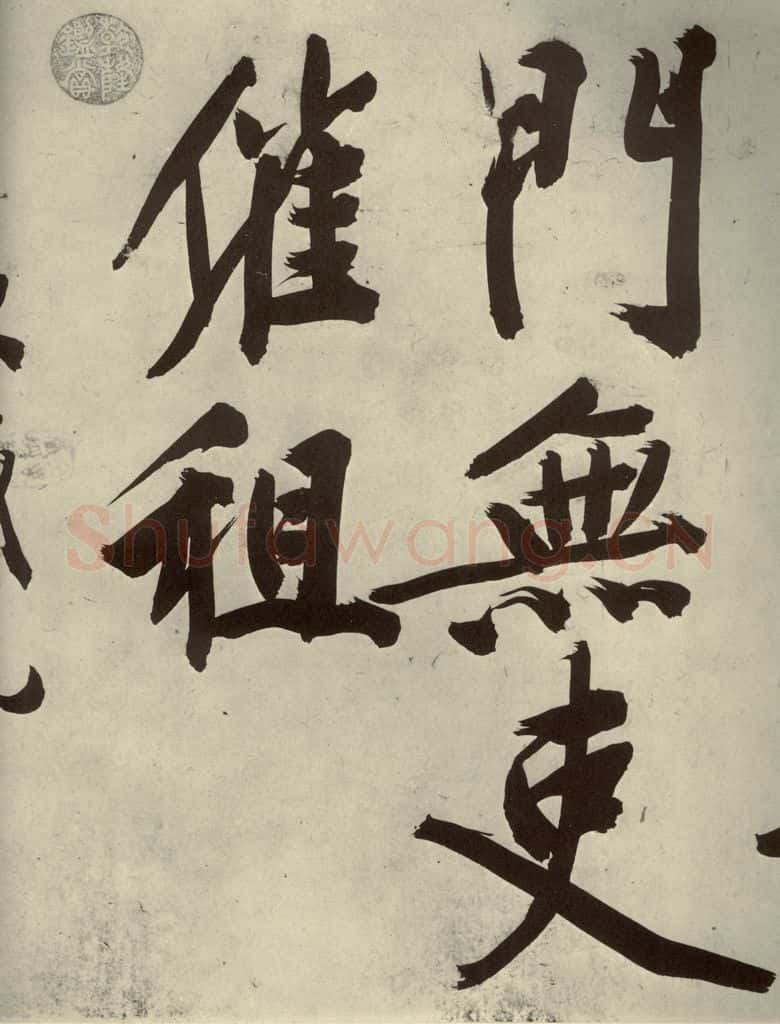 門無吏
催租
Shufawang.CN